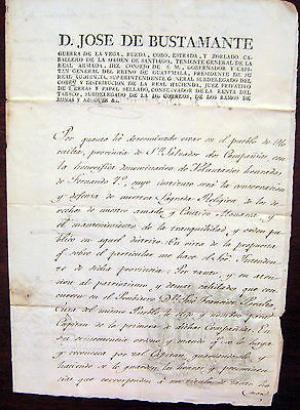 D. JOSE DE BUSTAMANTE
GUERRA DE LA VEGA, RUEDA, COBO, ESTRADA, Y ZORLADO CA-
BALLERO DE LA ORDEN DE SANTIAGO, TENIENTE GENERAL DE LA
REAL ARMADA, DEL CONSEJO DE S. M., GOBERNADOR Y CAPI-
TAN GENERAL DEL REINO DE GUATEMALA, PRESIDENTE DE SU
REAL AUDIENCIA, SUPERINTENDENTE GENERAL SUBDELEGADO DEL
COBRO Y DISTRIBUCION DE LA REAL HACIENDA, JUEZ PRIVATIVO
DE TIERRAS Y PAPEL SELLADO, CONSERVADOR DE LA RENTA DE
TABACO, SUBDELEGADO DE LA DE CORREOS, DE LOS RAMOS DE
MINAS Y AZOGUES &c.
Por quanto hé determinado crear en el pueblo de
provincia de Sn. Salvador dos Compañias con
la honorifica denominacion de Voluntarios honrados
de Fernando 7º, cuyo instituto será la conservacion
y defensa de nuestra Sagrada Religion, de los de-
rechos de nuestro amado, y Cautivo Monarca, y
el mantenimiento de la tranquilidad, y orden pu-
blico en aquel distrito: En vista de la propuesta
qe. sobre el particular me hace el Sor. Intenden-
te de dicha provincia: Por tanto, y en aten-
cion al patriotismo, y demas calidades que con-
curren en el Dn. José Francisco
del mismo Pueblo le elijo y nombro por
Capitan de la primera de dichas Compañias. En
su consecuencia ordeno y mando qe. se le haya
y reconozca por tal Capitan, guardandole, y
haciendole guardar, los honores, y preeminen-
cias que corresponden á